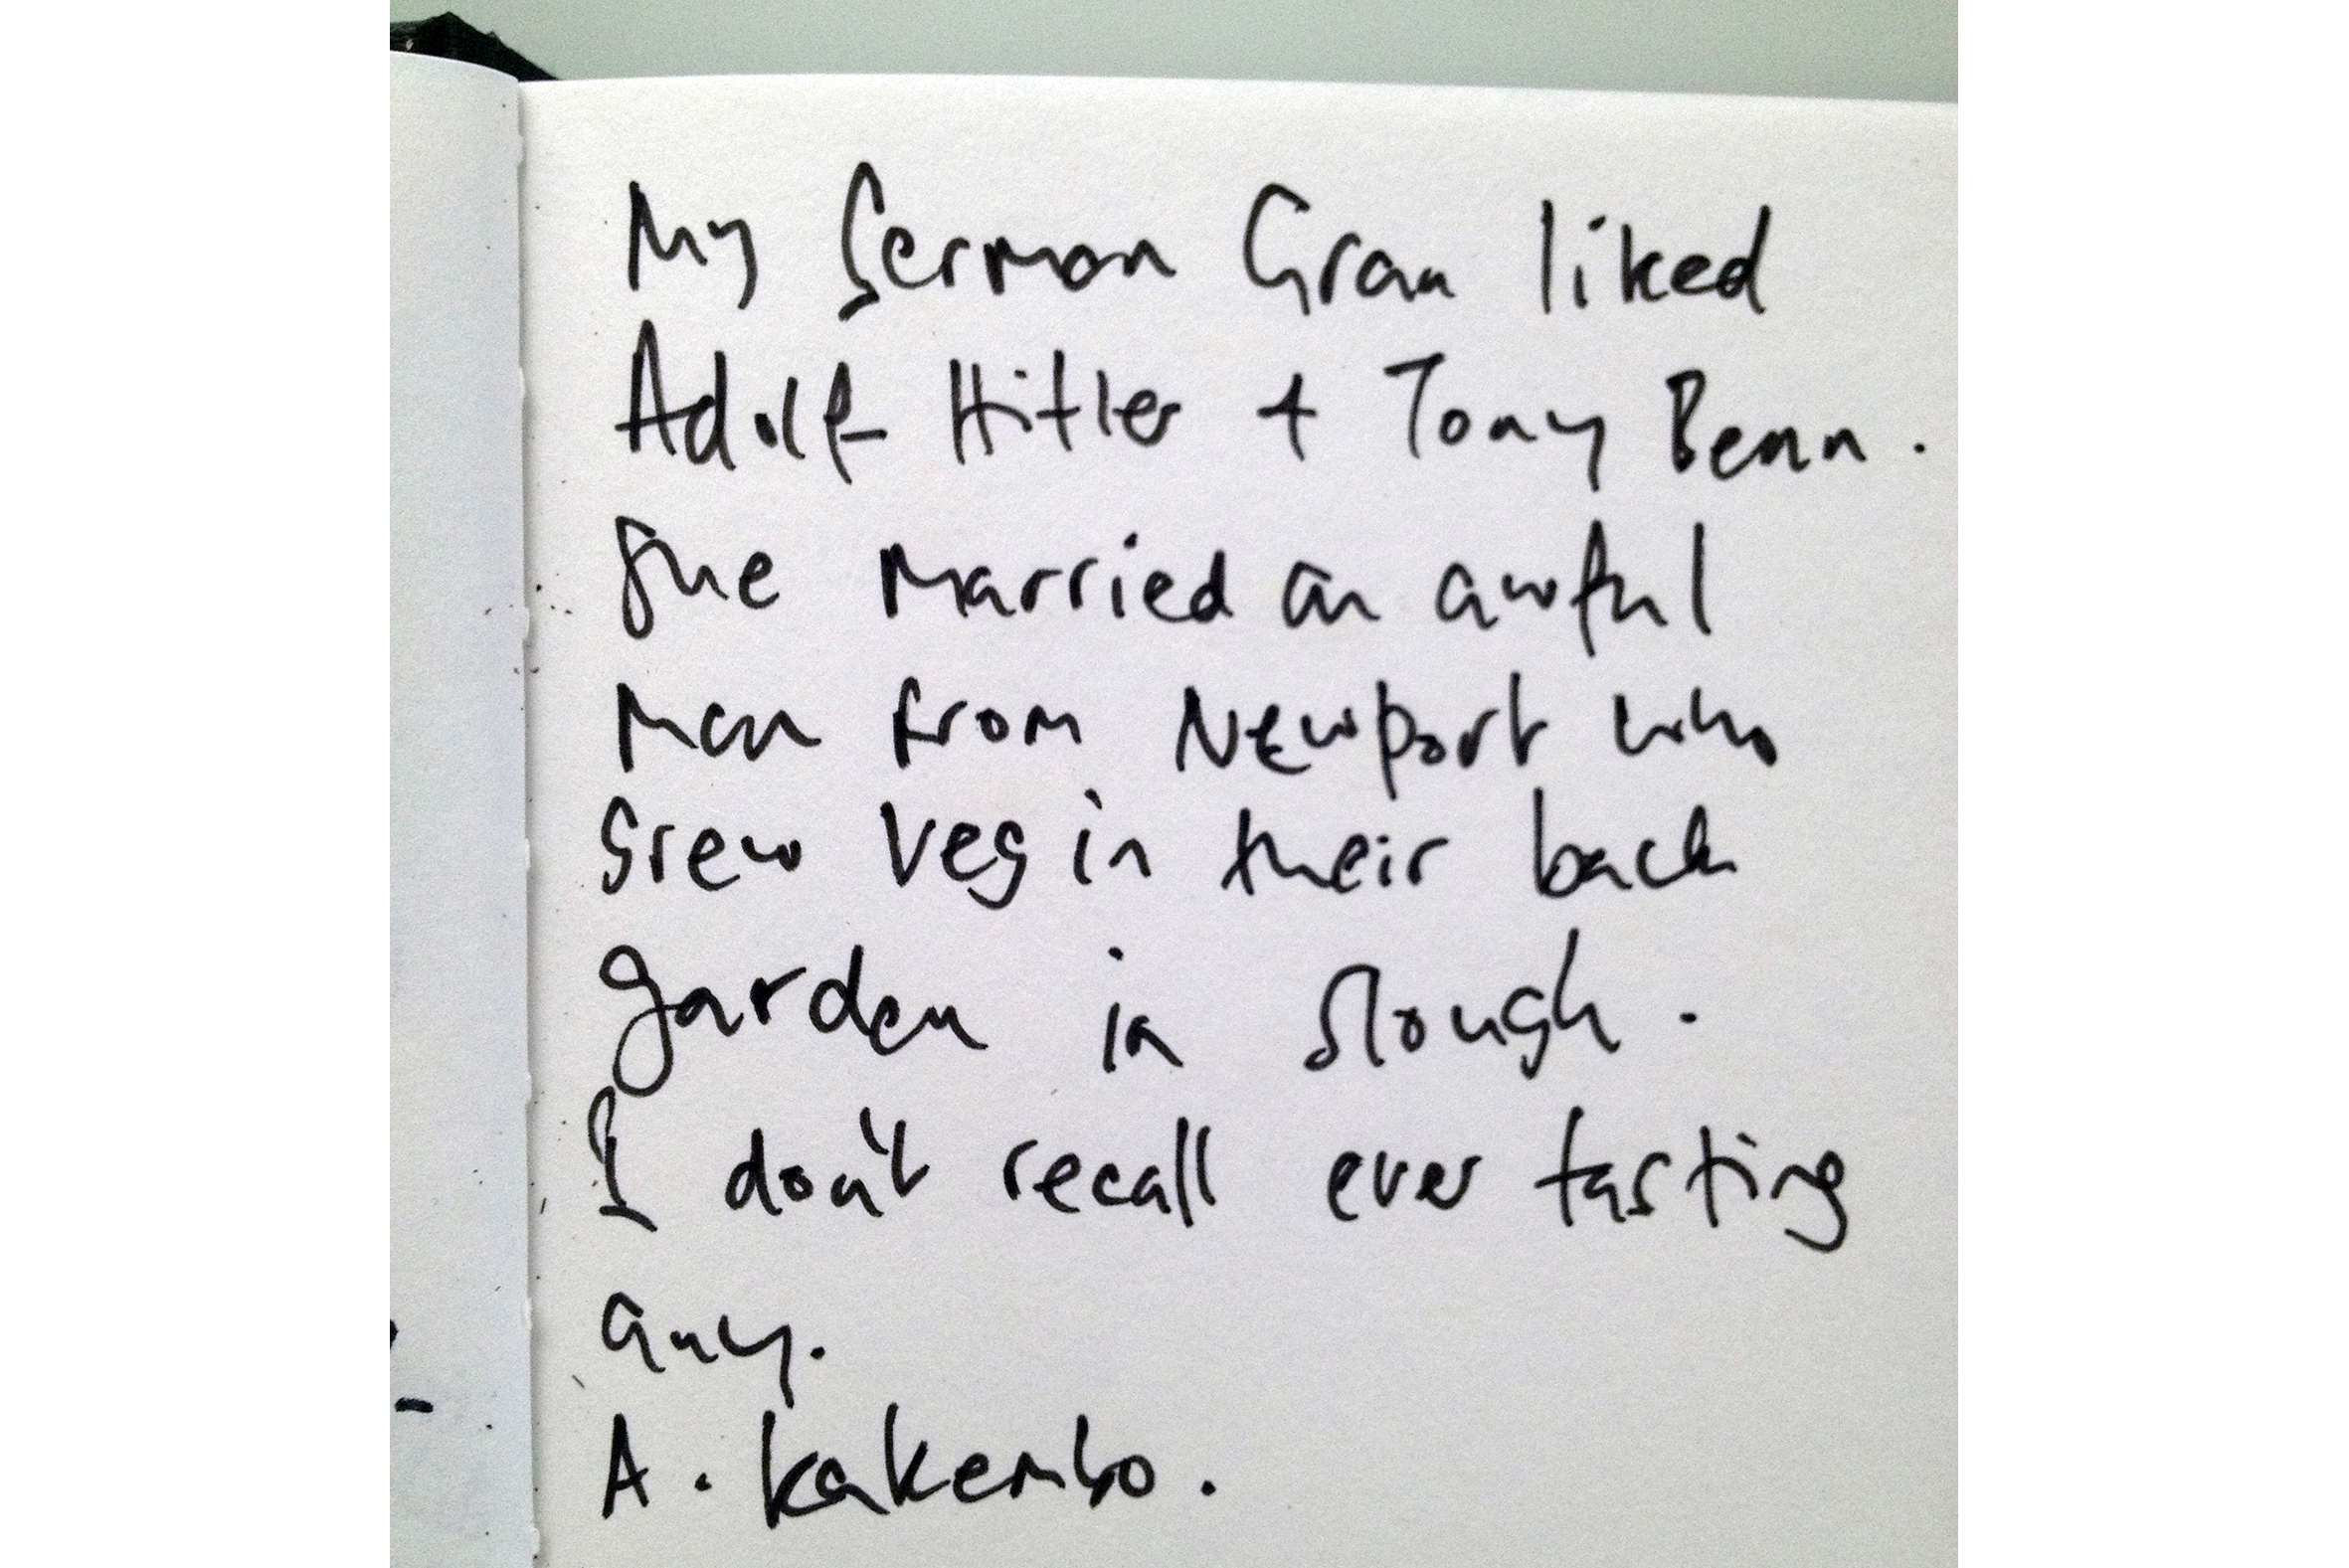 My German Gran liked
Adolf Hitler + Tony Benn.
She married an awful
man from Newport who
grew veg in their back
garden in Slough.
I don't recall ever tasting
any.
A. Kakembo.